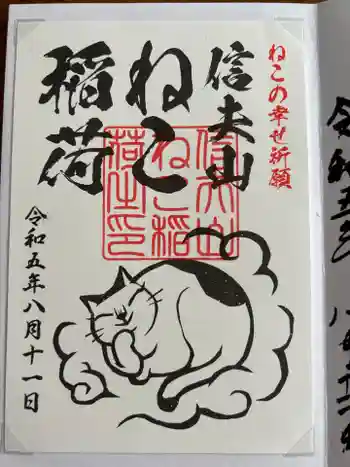 ねこの幸せ祈願
信夫山
ねこ
稲荷
信夫山
ねこ稲
荷之印
令和五年八月十一日
令和五年